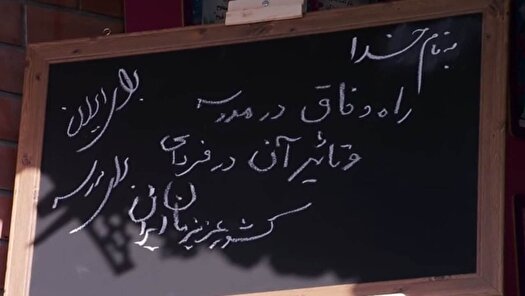 به نام خدا
راه وفاق در مدرسه
و تاثیر آن در فردای
کشور عزیزمان ایران
برای ایران
برای مدرسه